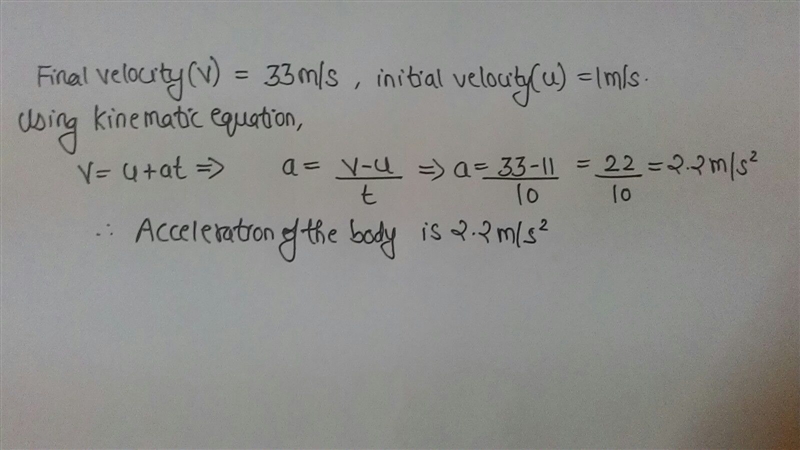 Final velocity(v) = 33m/s , initial velocity(u) =1m/s.
Using kinematic equation,
v= u+at ⇒ a = v-u/t ⇒ a= 33-11/10 = 22/10 = 2.2m/s²
∴ Acceleration of the body is 2.2m/s²